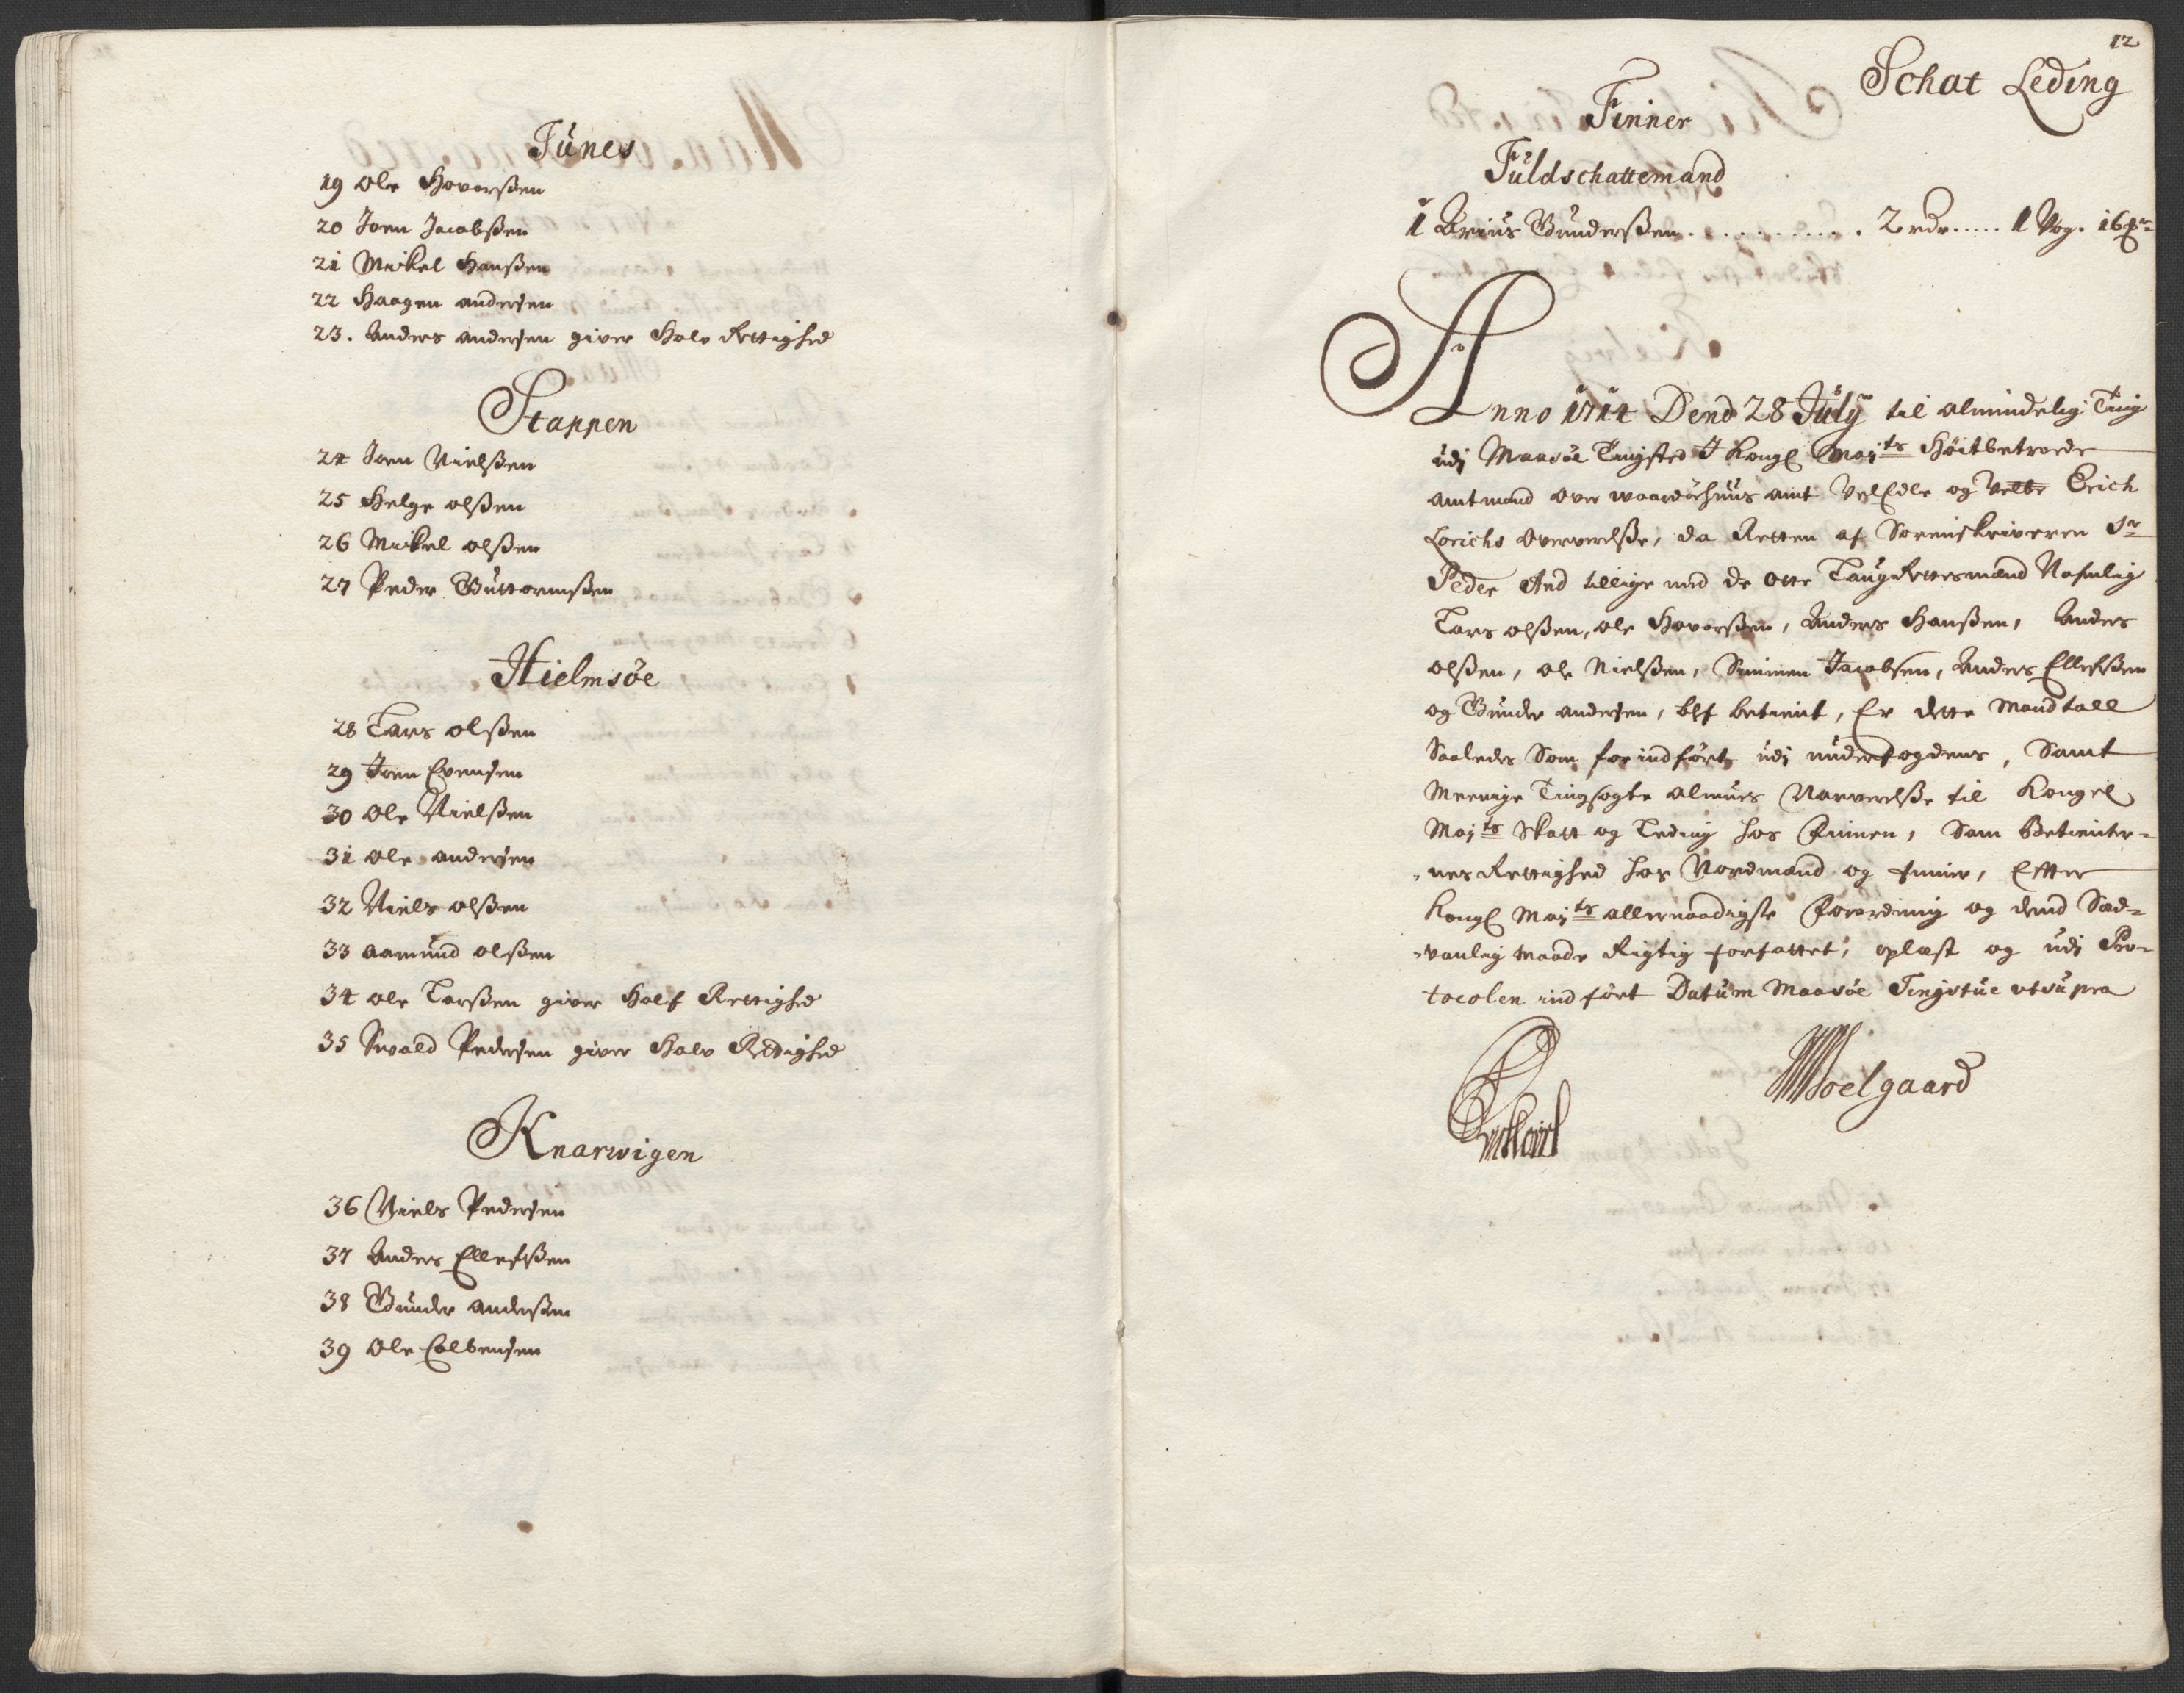 Tünes
19 Ole Hovorßen
20 Joen Jacobßen
21 Mickel Hanßen
22 Haagen andersen
23. Anders andersen giver Halv Rettighed
Stappen
24 Joen Nielßen
25 Helge olßen
26 Mickel olßen
27 Peder Guttormßen
Hielmsöe
28 Lars olßen
29 Joen Evensen
30 Ole Nielßen
31 Ole andersen
32 Niels olßen
33 Aamund olßen
34 Ole Larßen giver Half Rettighed
35 Sivald Pedersen giver Halv Rettighed
Knarwigen
36 Niels Pedersen
37 Anders Ellefsßen
38 Gunder anderßen
39 Ole Colbensen
12
Schat Leding
Finner
Füldschattemand
1 Grius Gunderßen . . . . . . . . . . . 2 rdr ..... 1 Vog. 16
Anno 1714 Dend 28 July til almindelig Ting
udj Maasöe Tingsted I Kongl Mayts Höitbetroede
amtmand over waardöehuus amt VelEdle og Velbr Erich
Lorichs oververelße, da Retten af Sorenskriveren Sr
Peder And tillige med de otte Laugrettesmænd Nafnlig
Lars olßen, ole Hovorßen, Anders Hanßen, Anders
olßen, ole Nielßen, Simmen Jacobsen, Anders Ellefsßen
og Gunder andersen, blef betient, Er dette Mandtall
Saaledes Som for indfört udj underfogdens, Samt
Meenige Tingsøgte almues Nærverelße til Kongel
Mayts Skatt og Leding hos Finnen, Sam Betienter-
-nes Rettighed hos Nordmænd og finner, Efter
Kongl Mayts allernaadigste Forordning og dend Sæd-
-vanlig maade Rigtig forfattet, oplæst og udj Pro-
tocolen indfört Datum Maasöe Tingstue ut supra
Moelgaard